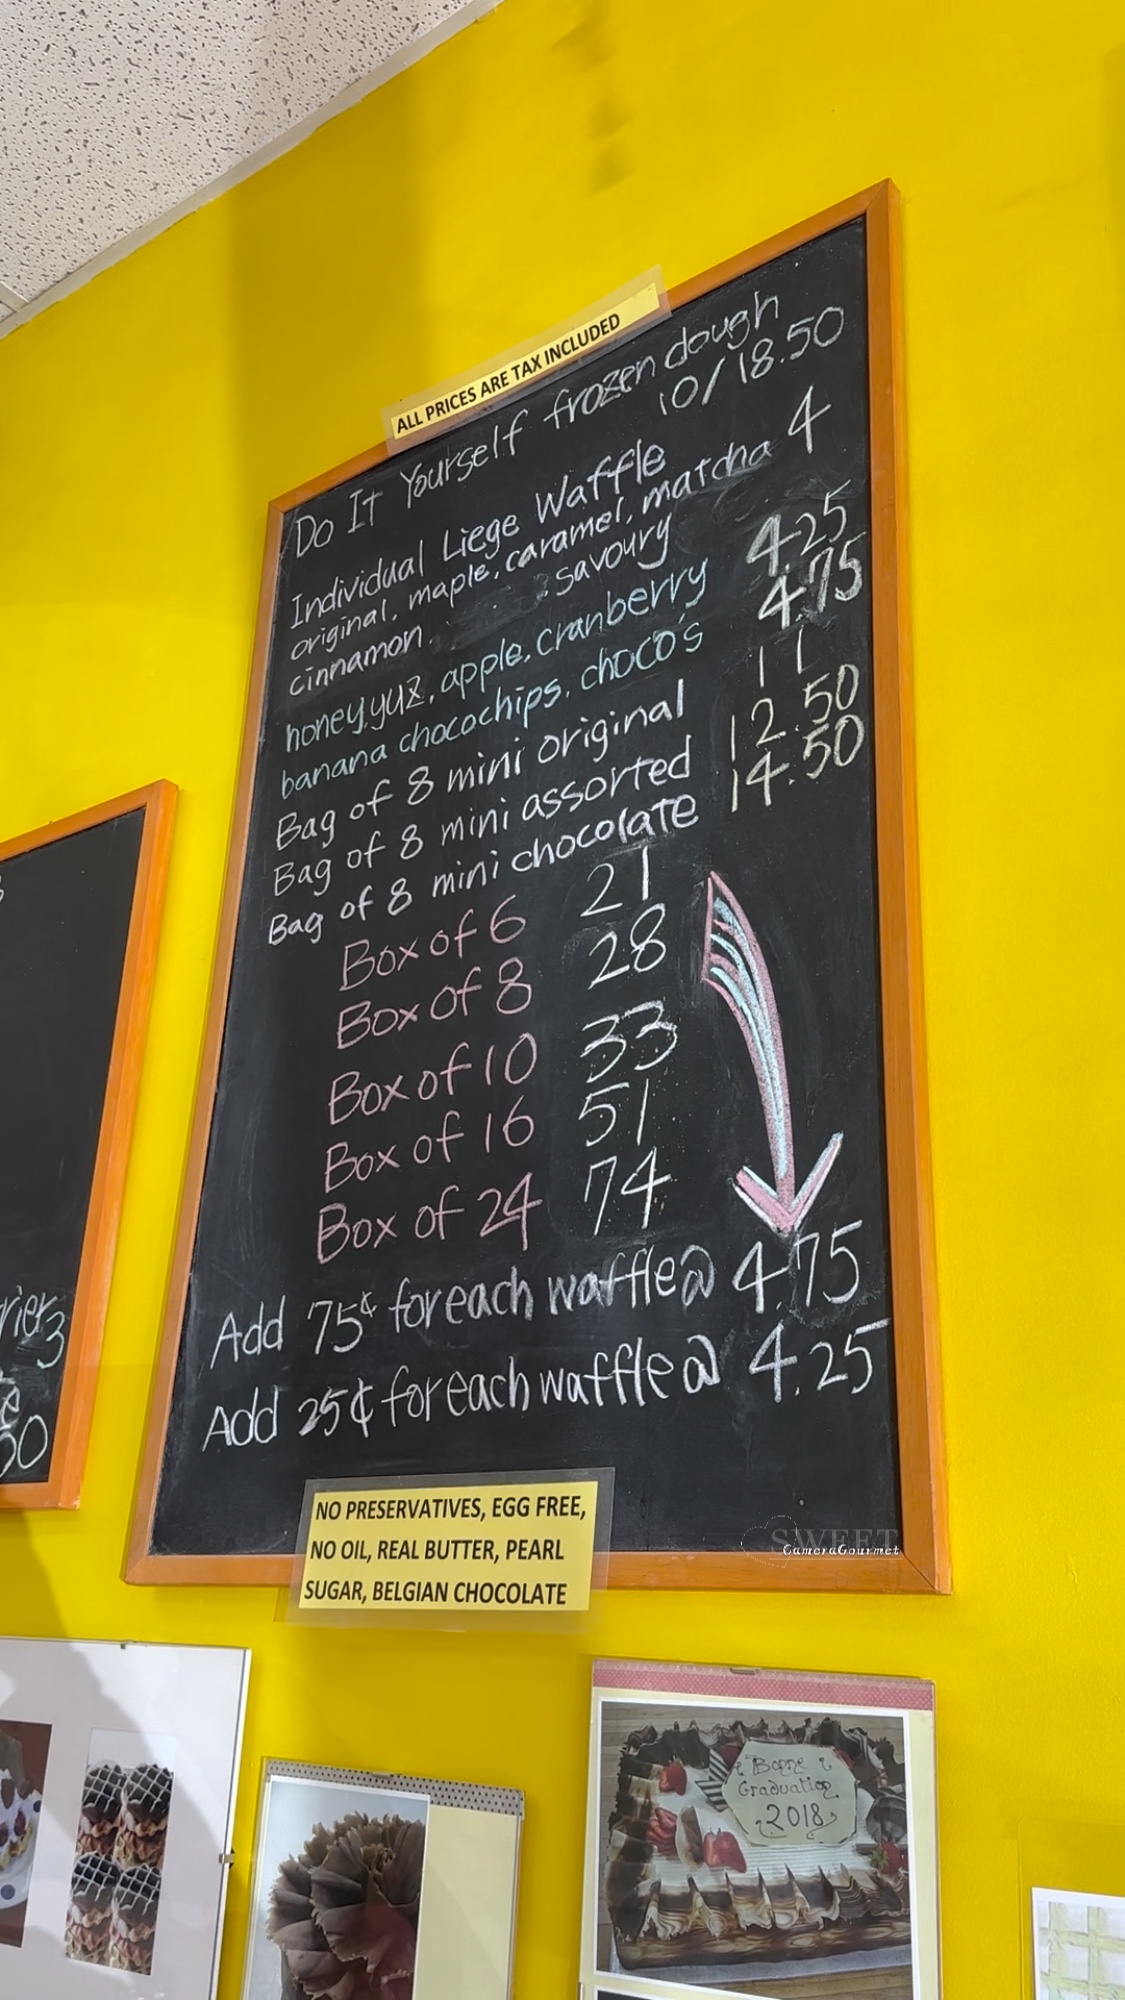 ALL PRICES ARE TAX INCLUDED
Do It Yourself frozen dough
10/18.50
Individual Liege Waffle
original, maple, caramel, matcha 4
cinnamon, savoury
honey, yuz, apple, cranberry 4.25
banana chocochips, choco's 4.75
Bag of 8 mini original 11
Bag of 8 mini assorted 12.50
Bag of 8 mini chocolate 14.50
Box of 6 21
Box of 8 28
Box of 10 33
Box of 16 51
Box of 24 74
Add 75¢ for each waffle @ 4.75
Add 25¢ for each waffle @ 4.25
NO PRESERVATIVES, EGG FREE,
NO OIL, REAL BUTTER, PEARL
SUGAR, BELGIAN CHOCOLATE
SWEET
CameraGourmet
Bonne
Graduation
2018